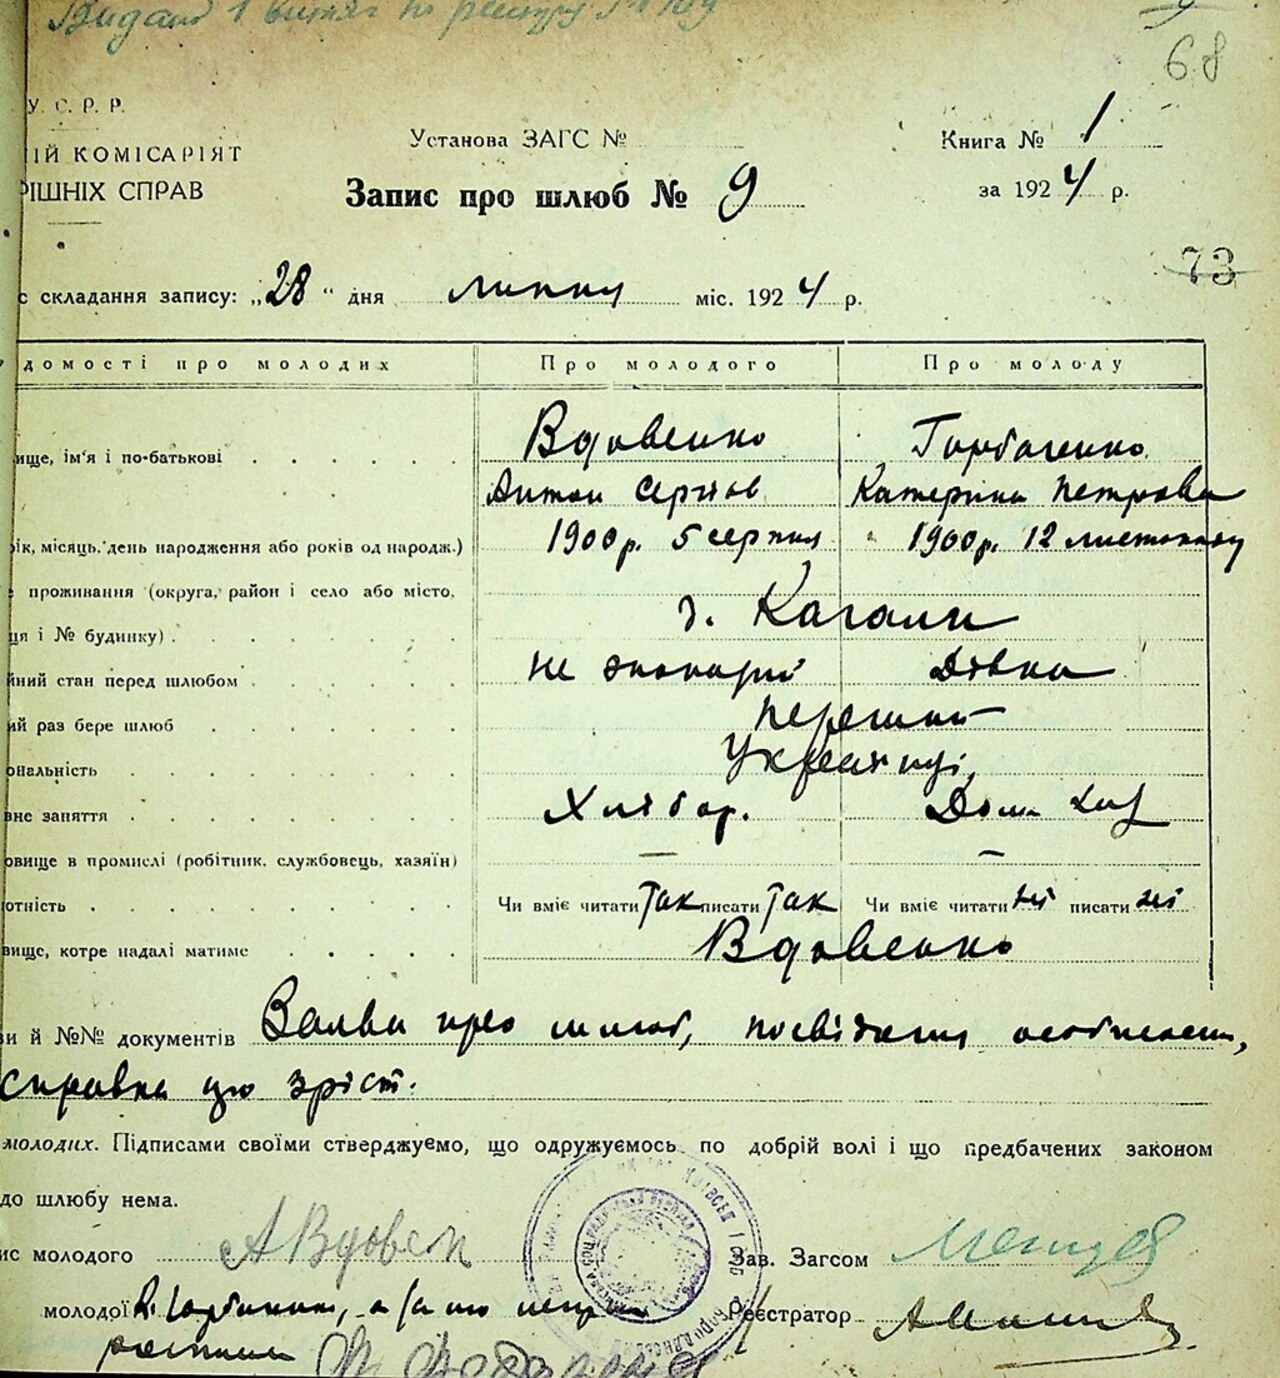 Видано 1 витяг по реєстру
68
У. С. Р. Р.
ІЙ КОМІСАРІЯТ
РІШНІХ СПРАВ
Установа ЗАГС №
Книга № 1
Запис про шлюб № 9
за 1924 р.
73
с складання запису: „28“ дня липня міс. 1924 р.
домості про молодих Про молодого Про молоду
вище, ім'я і по-батькові Вдовенко Горбаченко
Антон Сергіїв Катерина Петрова
рік, місяць, день народження або років од народж.) 1900 р. 5 серпня 1900 р. 12 листопаду
е проживання (округа, район і село або місто,
ця і № будинку) с. Кагали
йний стан перед шлюбом не жонатий Дівка
ий раз бере шлюб перший
ональність Українці,
вне заняття Хлібор. Дом. хаз
овище в промислі (робітник, службовець, хазяїн) — —
отність Чи вміє читати Так писати Так Чи вміє читати ні писати ні
вище, котре надалі матиме Вдовенко
ви й №№ документів Заява про шлюб, посвідчення особистості,
справка про зріст.
молодих. Підписами своїми стверджуємо, що одружуємось по добрій волі і що предбачених законом
до шлюбу нема.
ис молодого А Вдовен Зав. Загсом
молодої К. Горбаченко, а за неї непис Реєстратор